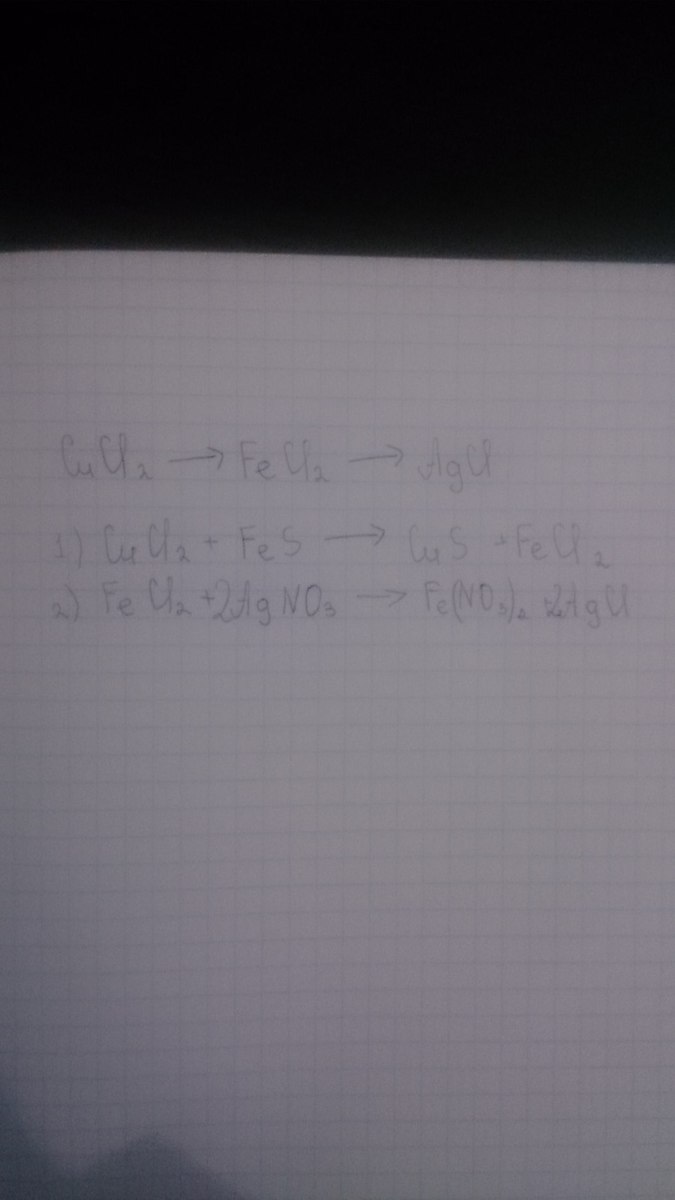 CuCl₂ → FeCl₂ → AgCl
1) CuCl₂ + FeS → CuS + FeCl₂
2) FeCl₂ + 2AgNO₃ → Fe(NO₃)₂ + 2AgCl